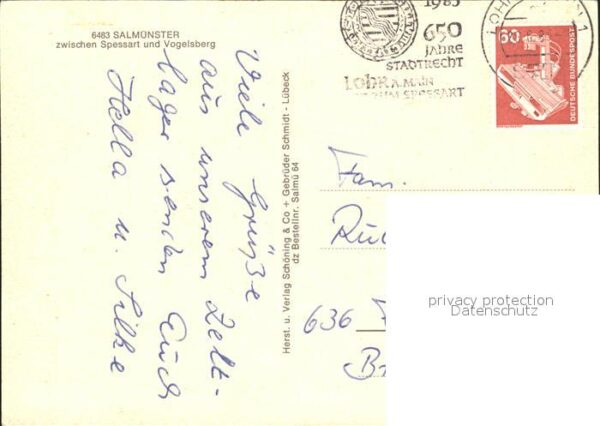 6483 SALMÜNSTER
zwischen Spessart und Vogelsberg
Viele Grüße
aus unserem Zelt-
lager senden Euch
Hella u. Silke
Herst. u. Verlag Schöning & Co + Gebrüder Schmidt - Lübeck
dz Bestellnr. Salmü 64
1983
650
JAHRE
STADTRECHT
LOHR A. MAIN
SPESSART
LOHR
1
60
DEUTSCHE BUNDESPOST
Fam.
636
privacy protection
Datenschutz